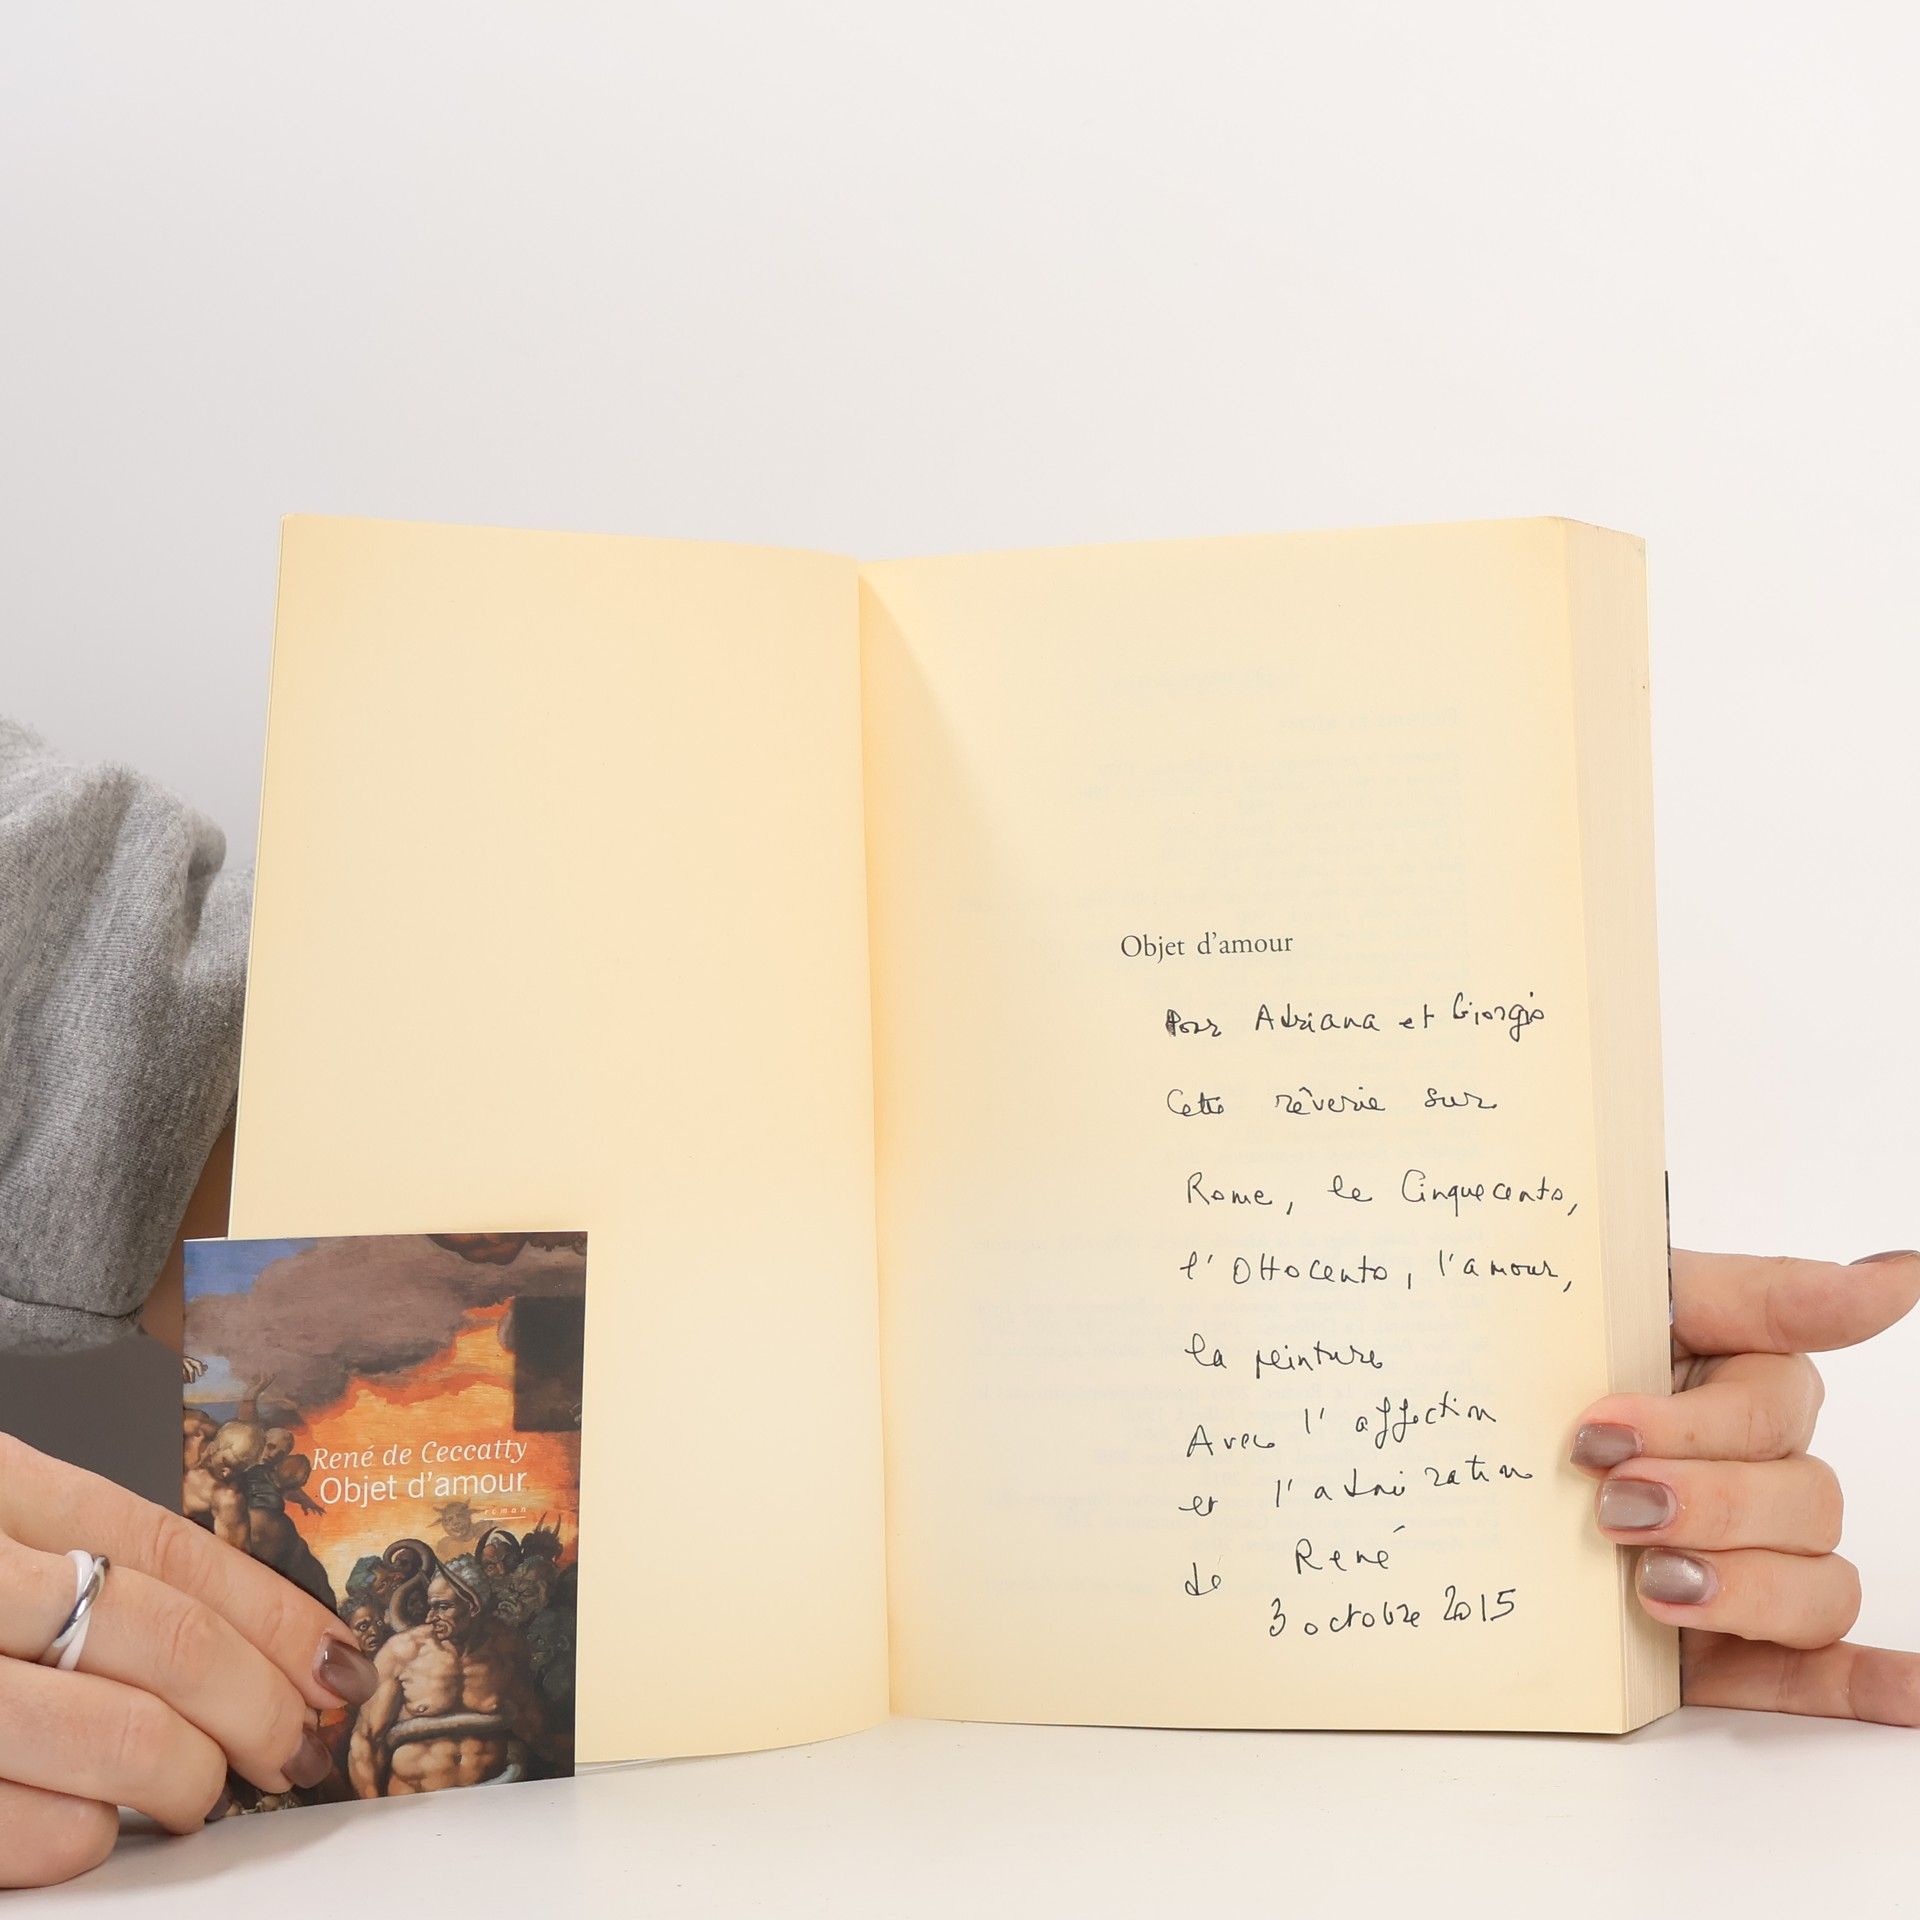 Objet d'amour
Pour Adriana et Giorgio
Cette rêverie sur
Rome, le Cinquecento,
l'Ottocento, l'amour,
la peinture
Avec l'affection
et l'admiration
de René
3 octobre 2015
René de Ceccatty
Objet d'amour
roman